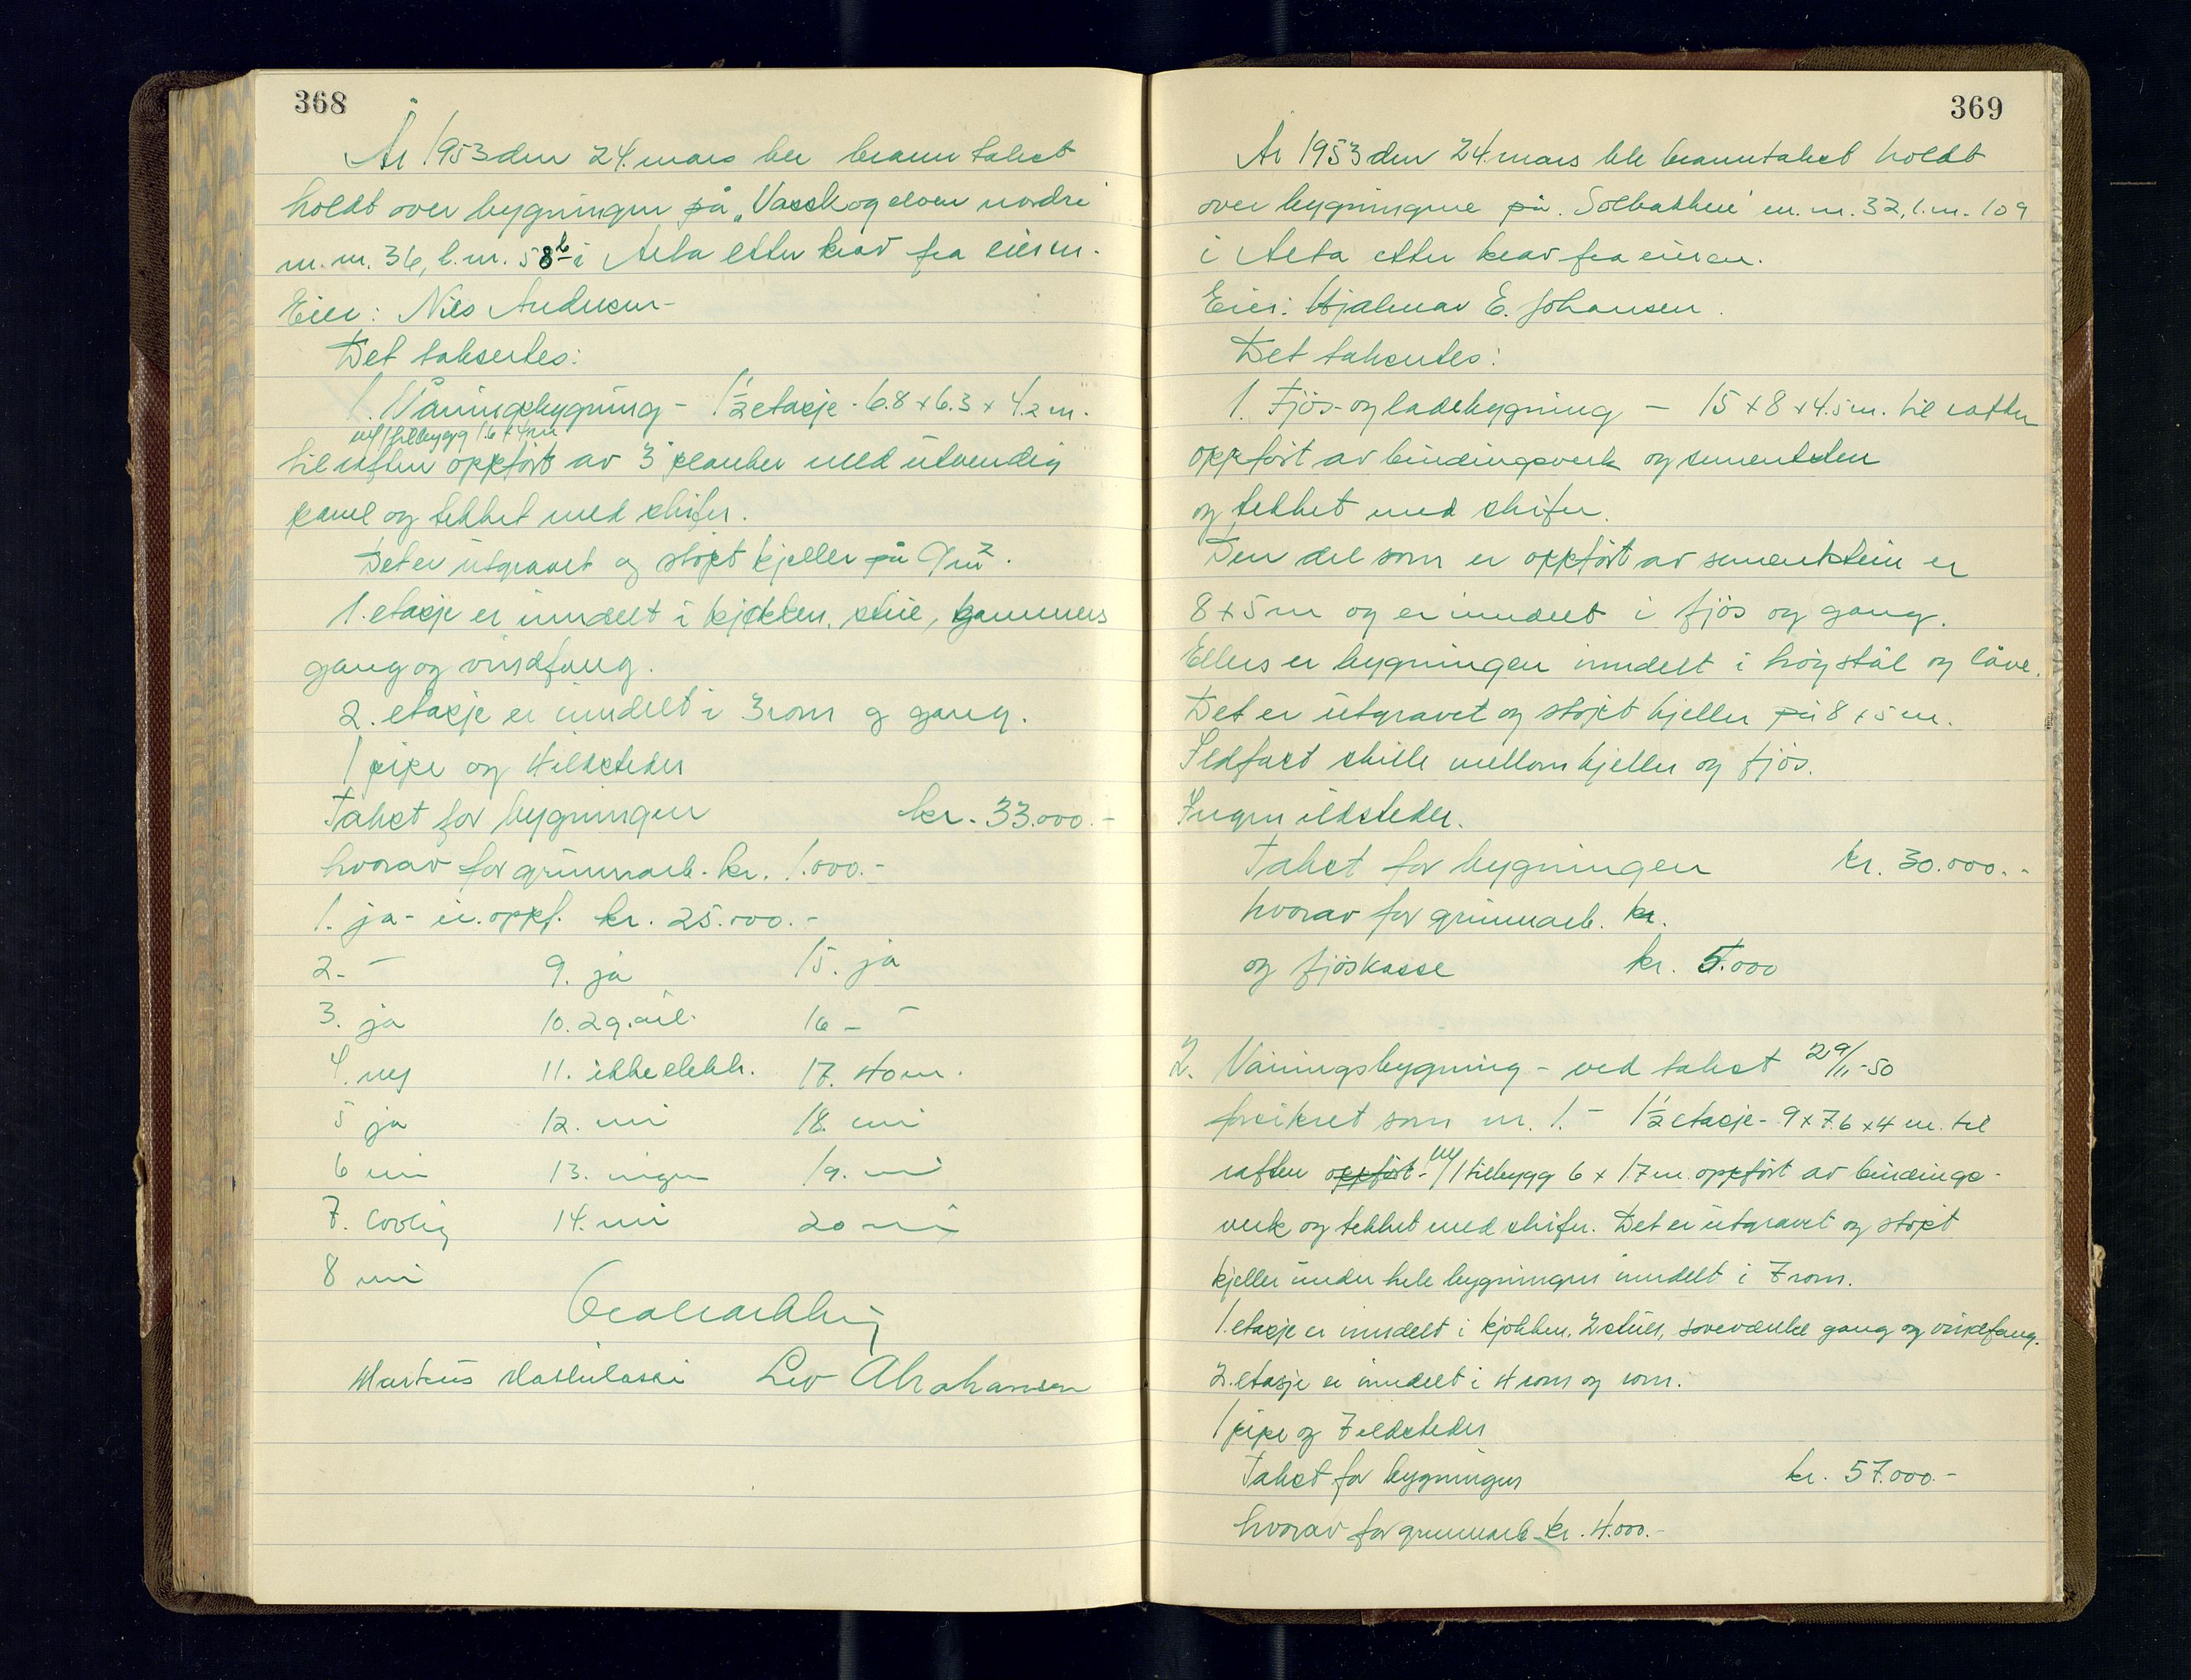 368
År 1953 den 24. mars ble branntakst
holdt over bygningen på „Vasskogelven nordre"
m. nr. 36, l. nr. 58 b i Alta etter krav fra eieren.
Eier: Nils Andersen
Det taksertes:
1. Våningsbygning - 1 1/2 etasje - 6.8 x 6.3 x 4.2 m.
m/1 tilbygg 1.6 x 4 m
til raften oppført av 3" planker med utvendig
panel og tekket med skifer.
Det er utgravet og støpt kjeller på 9 m².
1. etasje er inndelt i kjøkken, stue, kammers
gang og vindfang.
2. etasje er inndelt i 3 rom og gang.
1 pipe og 4 ildsteder
Takst for bygningen kr. 33.000.-
hvorav for grunnarb. kr. 1.000.-
1. ja - u. oppf. kr. 25.000.-
2. - 9. ja 15. ja
3. ja 10. 29. 16 - -
4. nei 11. ikke elektr. 17. 40 m.
5 ja 12. nei 18. nei
6 nei 13. ingen 19. nei
7. lovlig 14. nei 20 nei
8 nei
Leo Abrahamsen
369
År 1953 den 24. mars ble branntakst holdt
over bygningene på „Solbakken" m. nr. 32, l. nr. 109
i Alta etter krav fra eieren.
Eier: Hjalmar E. Johansen.
Det taksertes:
1. Fjøs- og ladebygning - 15 x 8 x 4.5 m. til raften
oppført av bindingsverk og sementsten
og tekket med skifer.
Den del som er oppført av sementstein er
8 x 5 m og er inndelt i fjøs og gang.
Ellers er bygningen inndelt i høystål og låve.
Det er utgravet og støpt kjeller på 8 x 5 m.
Ildfast skille mellom kjeller og fjøs.
Ingen ildsteder.
Takst for bygningen kr. 30.000.-
hvorav for grunnarb. kr.
og fjøskasse kr. 5.000
2. Våningsbygning - ved takst 29/11-50
forsikret som nr. 1. - 1 1/2 etasje - 9 x 7.6 x 4 m. til
raften oppført - m/1 tilbygg 6 x 1.7 m. oppført av bindings-
verk og tekket med skifer. Det er utgravet og støpt
kjeller under hele bygningen inndelt i 7 rom.
1. etasje er inndelt i kjøkken, 2 stuer, soveværelse gang og vindfang.
2. etasje er inndelt i 4 rom og rom.
1 pipe og 7 ildsteder
Takst for bygningen kr. 57.000.-
hvorav for grunnarb kr. 4.000.-